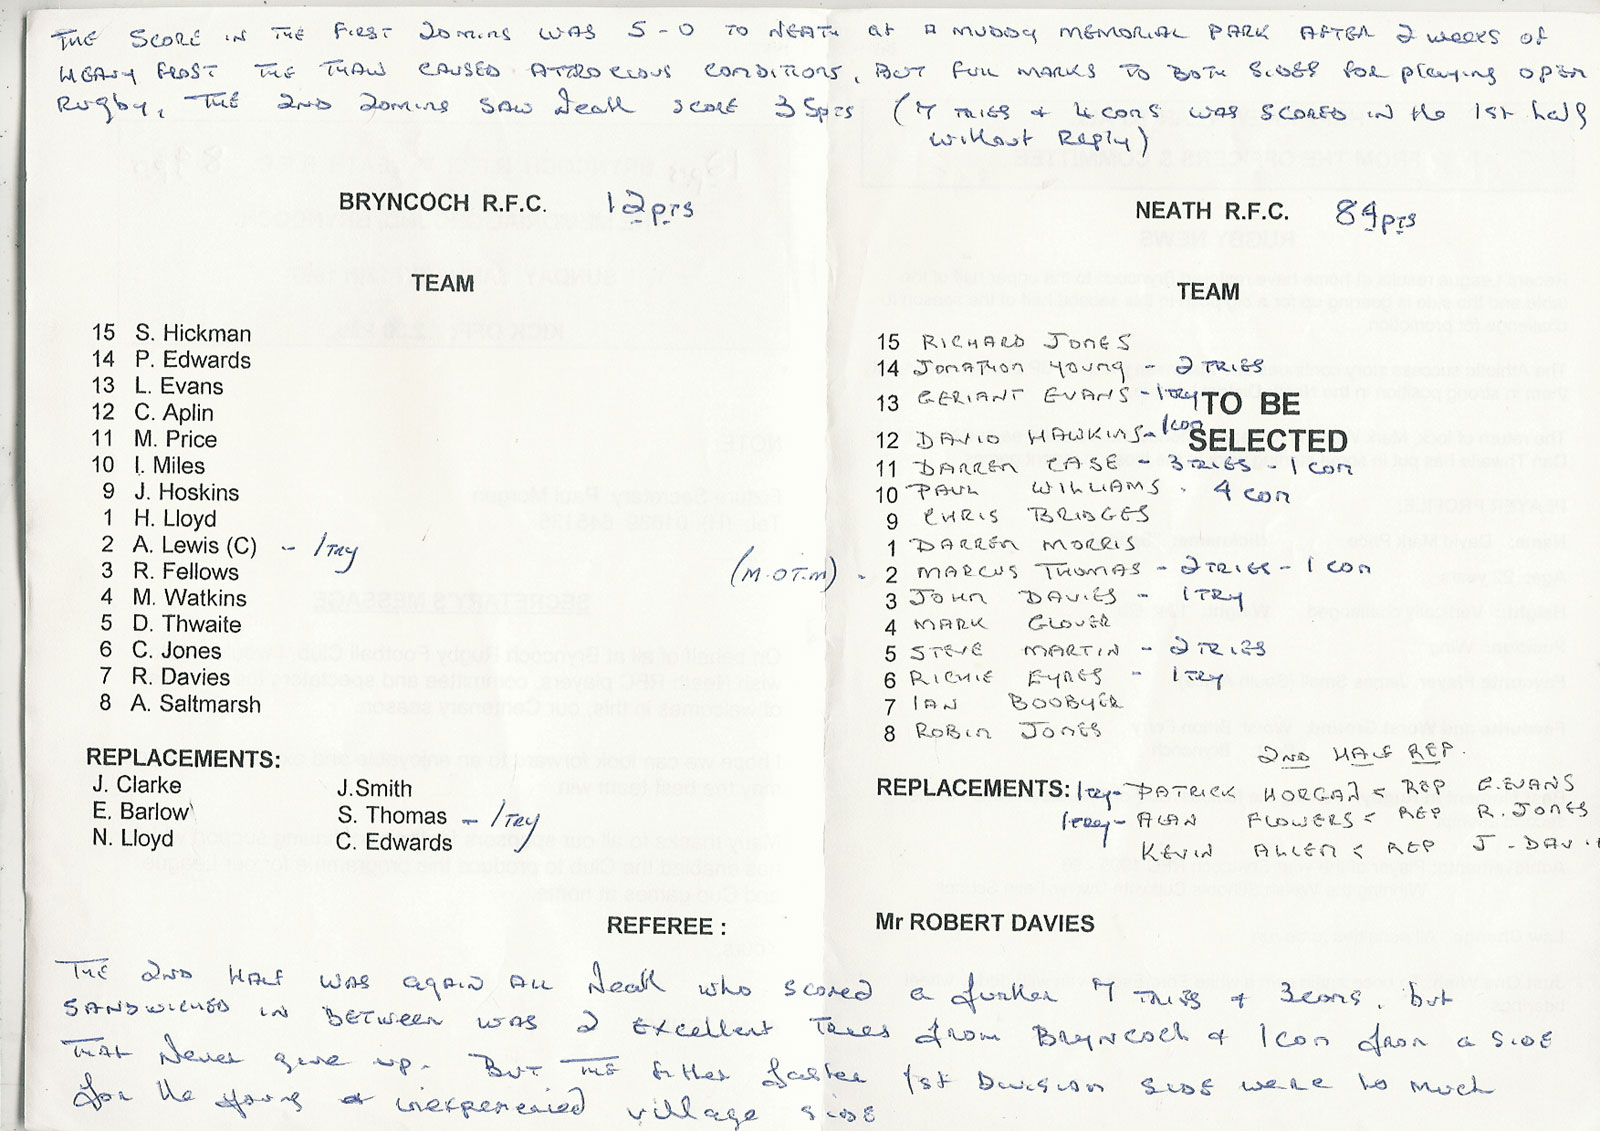 THE SCORE IN THE FIRST 20MINS WAS 5-0 TO NEATH at A MUDDY MEMORIAL PARK AFTER 2 weeks of
HEAVY FROST THE THAW CAUSED ATTROCIOUS CONDITIONS, BUT FULL MARKS TO BOTH SIDES for playing OPEN
Rugby, THE 2ND 20MINS SAW Neath SCORE 35pts (7 TRIES & 4 CONS WAS SCORED IN the 1st half
without Reply)
BRYNCOCH R.F.C. 12pts
TEAM
15 S. Hickman
14 P. Edwards
13 L. Evans
12 C. Aplin
11 M. Price
10 I. Miles
9 J. Hoskins
1 H. Lloyd
2 A. Lewis (C) - 1 TRY
3 R. Fellows
4 M. Watkins
5 D. Thwaite
6 C. Jones
7 R. Davies
8 A. Saltmarsh
REPLACEMENTS:
J. Clarke J.Smith
E. Barlow S. Thomas - 1 TRY
N. Lloyd C. Edwards
NEATH R.F.C. 89pts
TEAM
TO BE
SELECTED
15 RICHARD JONES
14 JONATHON YOUNG - 2 TRIES
13 GERIANT EVANS - 1 TRY
12 DAVID HAWKINS - 1 CON
11 DARREN CASE - 3 TRIES - 1 CON
10 PAUL WILLIAMS . 4 CON
9 CHRIS BRIDGES
1 DARREN MORRIS
(M.OT.M) - 2 MARCUS THOMAS - 2 TRIES - 1 CON
3 JOHN DAVIES - 1 TRY
4 MARK GLOVER
5 STEVE MARTIN - 2 TRIES
6 RICHIE EYRES - 1 TRY
7 IAN BOOBYER
8 ROBIN JONES
2ND HALF REP.
REPLACEMENTS: 1 try - PATRICK HORGAN < REP G.EVANS
1 try - ALAN FLOWERS < REP R.JONES
KEVIN ALLEN < REP J-DAVI
REFEREE : Mr ROBERT DAVIES
THE 2ND HALF WAS again ALL Neath who scored a further 7 TRIES & 3cons, but
SANDWICHED IN BETWEEN WAS 2 Excellent Tries from Bryncoch & 1 Con from a SIDE
THAT Never give up. BUT THE fitter faster 1st Division SIDE were to much
for the young & inexperienced village side